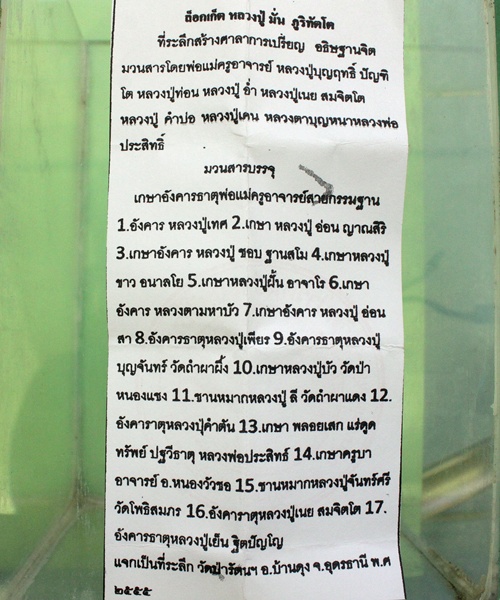 ล็อกเก็ต หลวงปู่ มั่น ภูริทัตโต
ที่ระลึกสร้างศาลาการเปรียญ อธิษฐานจิต
มวนสารโดยพ่อแม่ครูอาจารย์ หลวงปู่บุญฤทธิ์ ปัญฑิ
โต หลวงปู่ท่อน หลวงปู่ อ่ำ หลวงปู่เนย สมจิตโต
หลวงปู่ คำปอ หลวงปู่เคน หลวงตาบุญหนาหลวงพ่อ
ประสิทธิ์
มวนสารบรรจุ
เกษาอังคารธาตุพ่อแม่ครูอาจารย์สายกรรมฐาน
1.อังคาร หลวงปู่เทศ 2.เกษา หลวงปู่ อ่อน ญาณสิริ
3.เกษาอังคาร หลวงปู่ ชอบ ฐานสโม 4.เกษาหลวงปู่
ขาว อนาลโย 5.เกษาหลวงปู่ฝั้น อาจาโร 6.เกษา
อังคาร หลวงตามหาบัว 7.เกษาอังคาร หลวงปู่ อ่อน
สา 8.อังคารธาตุหลวงปู่เพียร 9.อังคารธาตุหลวงปู่
บุญจันทร์ วัดถ้ำผาผึ้ง 10.เกษาหลวงปู่บัว วัดป่า
หนองแซง 11.ชานหมากหลวงปู่ ลี วัดถ้ำผาแดง 12.
อังคาราตุหลวงปุ่คำตัน 13.เกษา พลอยเสก แร่ดูด
ทรัพย์ ปฐวีธาตุ หลวงพ่อประสิทธ์ 14.เกษาครูบา
อาจารย์ อ.หนองวัวซอ 15.ชานหมากหลวงปู่จันทร์ศรี
วัดโพธิสมภร 16.อังคาราตุหลวงปู่เนย สมจิตโต 17.
อังคารธาตุหลวงปู่เย็น ฐิตปัญโญ
แจกเป็นที่ระลึก วัดป่ารัตนฯ อ.บ้านดุง จ.อุดรธานี พ.ศ
๒๕๕๕